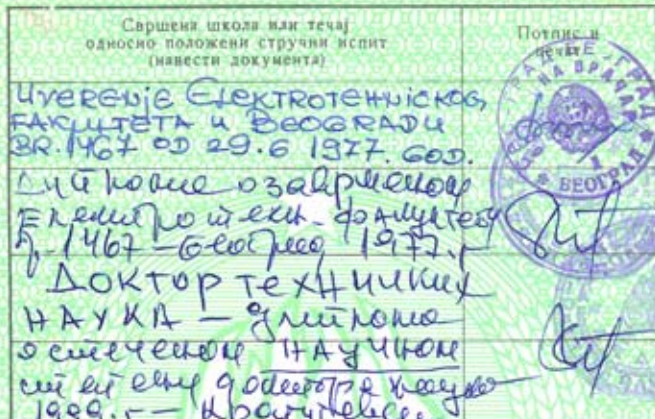 Свршена школа или течај
односно положени стручни испит
(навести документа)
Потпис и
печат
UVERENJE ELEKTROTEHNIČKOG
FAKULTETA U BEOGRADU
BR. 1467 OD 29.6 1977. GOD.
Диплома о завршеном
електротехн. факултету
1467 – Београд 1977. г
ДОКТОР ТЕХНИЧКИХ
НАУКА – диплома
о стеченом НАУЧНОМ
степену доктора наука
1989. г –
ВРАЧАР
БЕОГРАД